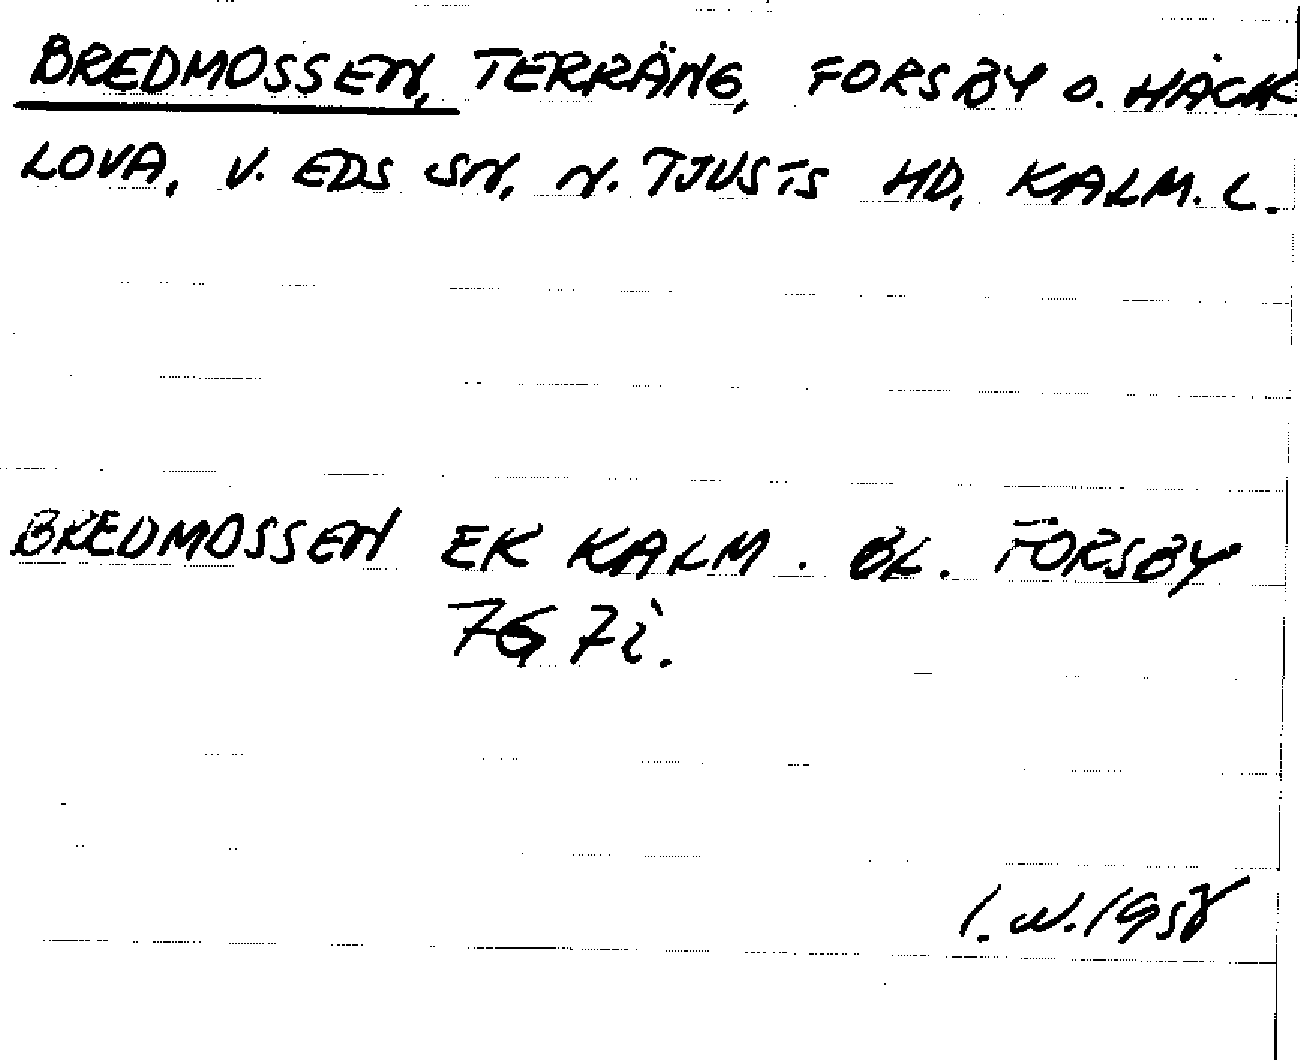 BREDMOSSEN, TERRÄNG, FORSBY O. HÄCK
LOVA, V. EDS SN, N. TJUSTS HD, KALM. L.
BREDMOSSEN EK KALM. BL. FORSBY
7G 7i.
I. W. 1958